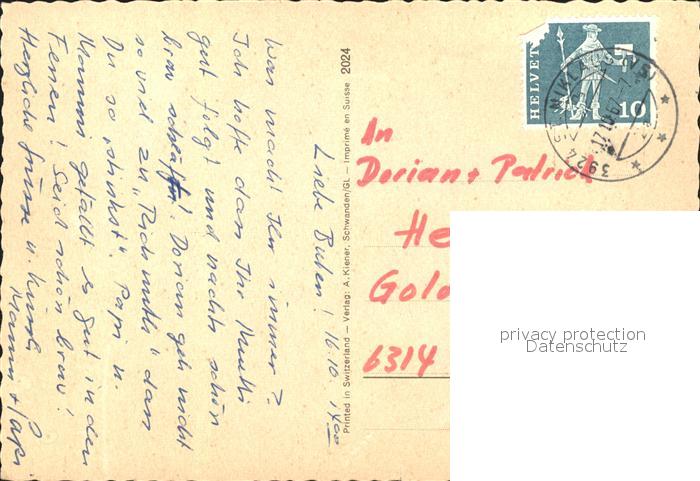 Liebe Buben! 16.10. 1400
Was macht Ihr immer?
Ich hoffe dass Ihr Mutti
gut folgt und nachts schön
brav schlaft! Dorian geh nicht
so viel zu "
Du so "stinkst". Papi u.
Mammi gefällt es gut in den
Ferien! Seid schön brav!
Herzliche Grüsse u. Küssli
Mammi + Papi
Printed in Switzerland — Verlag: A. Kiener, Schwanden/GL — Imprimé en Suisse 2024
HELVET
10
3924 ST. NIKLAUS (VS)
17.10.67
An
Dorian + Patrick
He
Gold
6314
privacy protection
Datenschutz